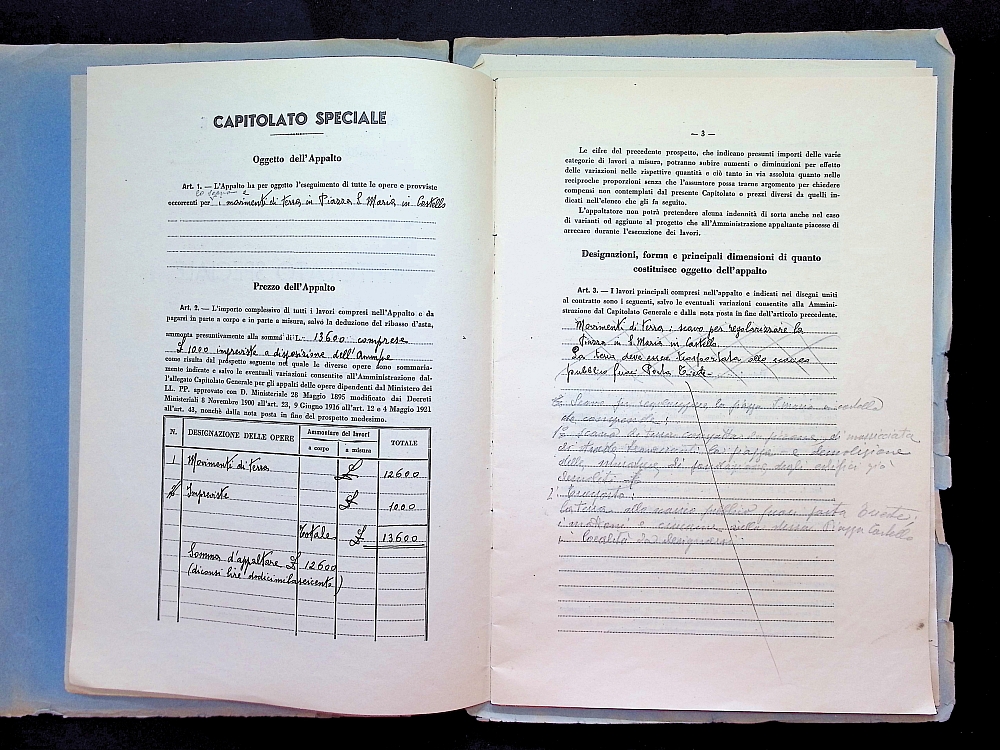 CAPITOLATO SPECIALE
Oggetto dell'Appalto
Art. 1. — L'Appalto ha per oggetto l'eseguimento di tutte le opere e provviste
lo scavo e
occorrenti per i movimenti di terra in Piazza S. Maria in Castello
Prezzo dell'Appalto
Art. 2. — L'importo complessivo di tutti i lavori compresi nell'Appalto e da
pagarsi in parte a corpo e in parte a misura, salvo la deduzione del ribasso d'asta,
ammonta presuntivamente alla somma di L. 13600 comprese
£ 1000 impreviste a disposizione dell'Ammne
come risulta dal prospetto seguente nel quale le diverse opere sono sommaria-
mente indicate e salvo le eventuali variazioni consentite all'Amministrazione dal-
l'allegato Capitolato Generale per gli appalti delle opere dipendenti dal Ministero dei
LL. PP. approvato con D. Ministeriale 28 Maggio 1895 modificato dai Decreti
Ministeriali 8 Novembre 1900 all'art. 23, 9 Giugno 1916 all'art. 12 e 4 Maggio 1921
all'art. 43, nonchè dalla nota posta in fine del prospetto medesimo.
N. DESIGNAZIONE DELLE OPERE Ammontare dei lavori TOTALE
a corpo a misura
1 Movimenti di terra £ 12600
2 Impreviste £ 1000
Totale £ 13600
Somma d'appaltare £ 12600
(diconsi lire dodicimilaseicento)
— 3 —
Le cifre del precedente prospetto, che indicano presunti importi delle varie
categorie di lavori a misura, potranno subire aumenti o diminuzioni per effetto
delle variazioni nelle rispettive quantità e ciò tanto in via assoluta quanto nelle
reciproche proporzioni senza che l'assuntore possa trarne argomento per chiedere
compensi non contemplati dal presente Capitolato o prezzi diversi da quelli in-
dicati nell'elenco che gli fa seguito.
L'appaltatore non potrà pretendere alcuna indennità di sorta anche nel caso
di varianti od aggiunte al progetto che all'Amministrazione appaltante piacesse di
arrecare durante l'esecuzione dei lavori.
Designazioni, forma e principali dimensioni di quanto
costituisce oggetto dell'appalto
Art. 3. — I lavori principali compresi nell'appalto e indicati nei disegni uniti
al contratto sono i seguenti, salvo le eventuali variazioni consentite alla Ammini-
strazione dal Capitolato Generale e dalla nota posta in fine dell'articolo precedente.
Movimenti di terra: scavo per regolarizzare la
Piazza in S. Maria in Castello.
La terra deve essere trasportata allo scarico
pubblico fuori Porta Trieste.
Scavo per regolarizzare la piazza S. Maria in Castello
che corrisponde:
scavo di terra compatta in piazza, di massicciata
di strada la piazza e demolizione
delle murature di fondazione degli edifici già
demoliti
2° trasporto:
la terra allo scarico pubblico fuori porta Trieste;
i mattoni e nella stessa Piazza Castello
in località da designarsi